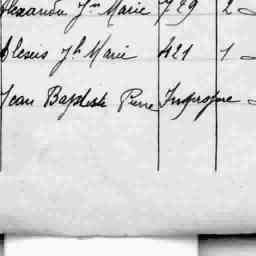 Alexandre Jn Marie 729 2
Alexis Jh Marie 421 1
Jean Baptiste Pierre Impropre